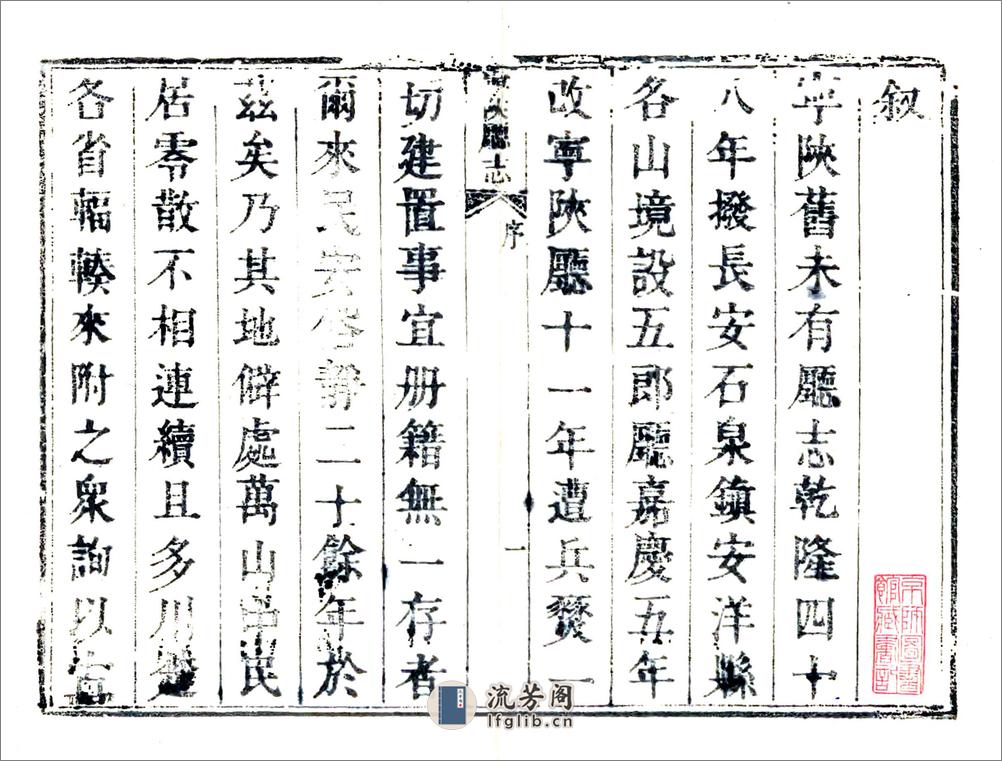 叙
寧陝舊未有廳志乾隆四十
八年撥長安石泉鎮安洋縣
各山境設五郎廳嘉慶五年
改寧陝廳十一年遭兵燹一
寧陝廳志
序
一
切建置事宜册籍無一存者
爾來民安俗靜二十餘年於
茲矣乃其地僻處萬山中民
居零散不相連續且多川楚
各省輻輳來附之衆詢以古
京師圖書
館藏書記
流芳阁
lfglib.cn